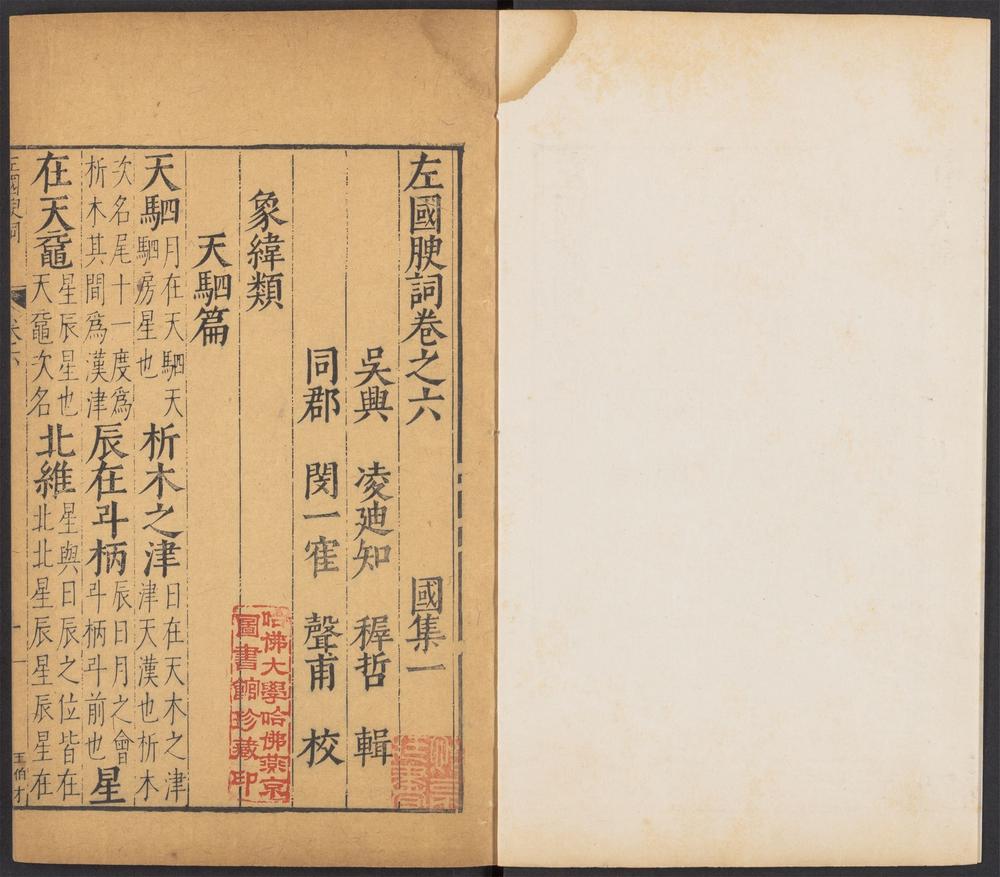 左國腴詞卷之六 國集一
吳興 凌迪知 穉哲 輯
同郡 閔一隺 聲甫 校
象緯類
天駟篇
天駟月在天駟天駟房星也 析木之津日在天木之津津天漢也析木
次名尾十一度爲析木其間爲漢津 辰在斗柄辰日月之會斗柄斗前也 星
在天黿星辰星也天黿次名 北維星與日辰之位皆在北北星辰星辰星在
王伯才
哈佛大學哈佛燕京
圖書館珍藏印